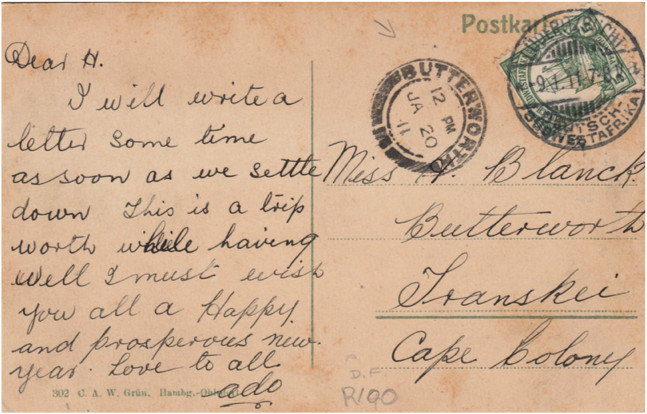 Postkarte
Dear H.
I will write a
letter some time
as soon as we settle
down This is a trip
worth while having
well I must wish
you all a Happy
and prosperous new
year. Love to all
ado
302 C. A. W. Grün, Hambg.
BUTTERWORTH
12 PM
JA 20
11
LÜDERITZBUCHT
9.1.11.7-8
DEUTSCH-
SÜDWESTAFRIKA
Miss H. Blanck.
Butterworth
Transkei
Cape Colony
D.F
R190